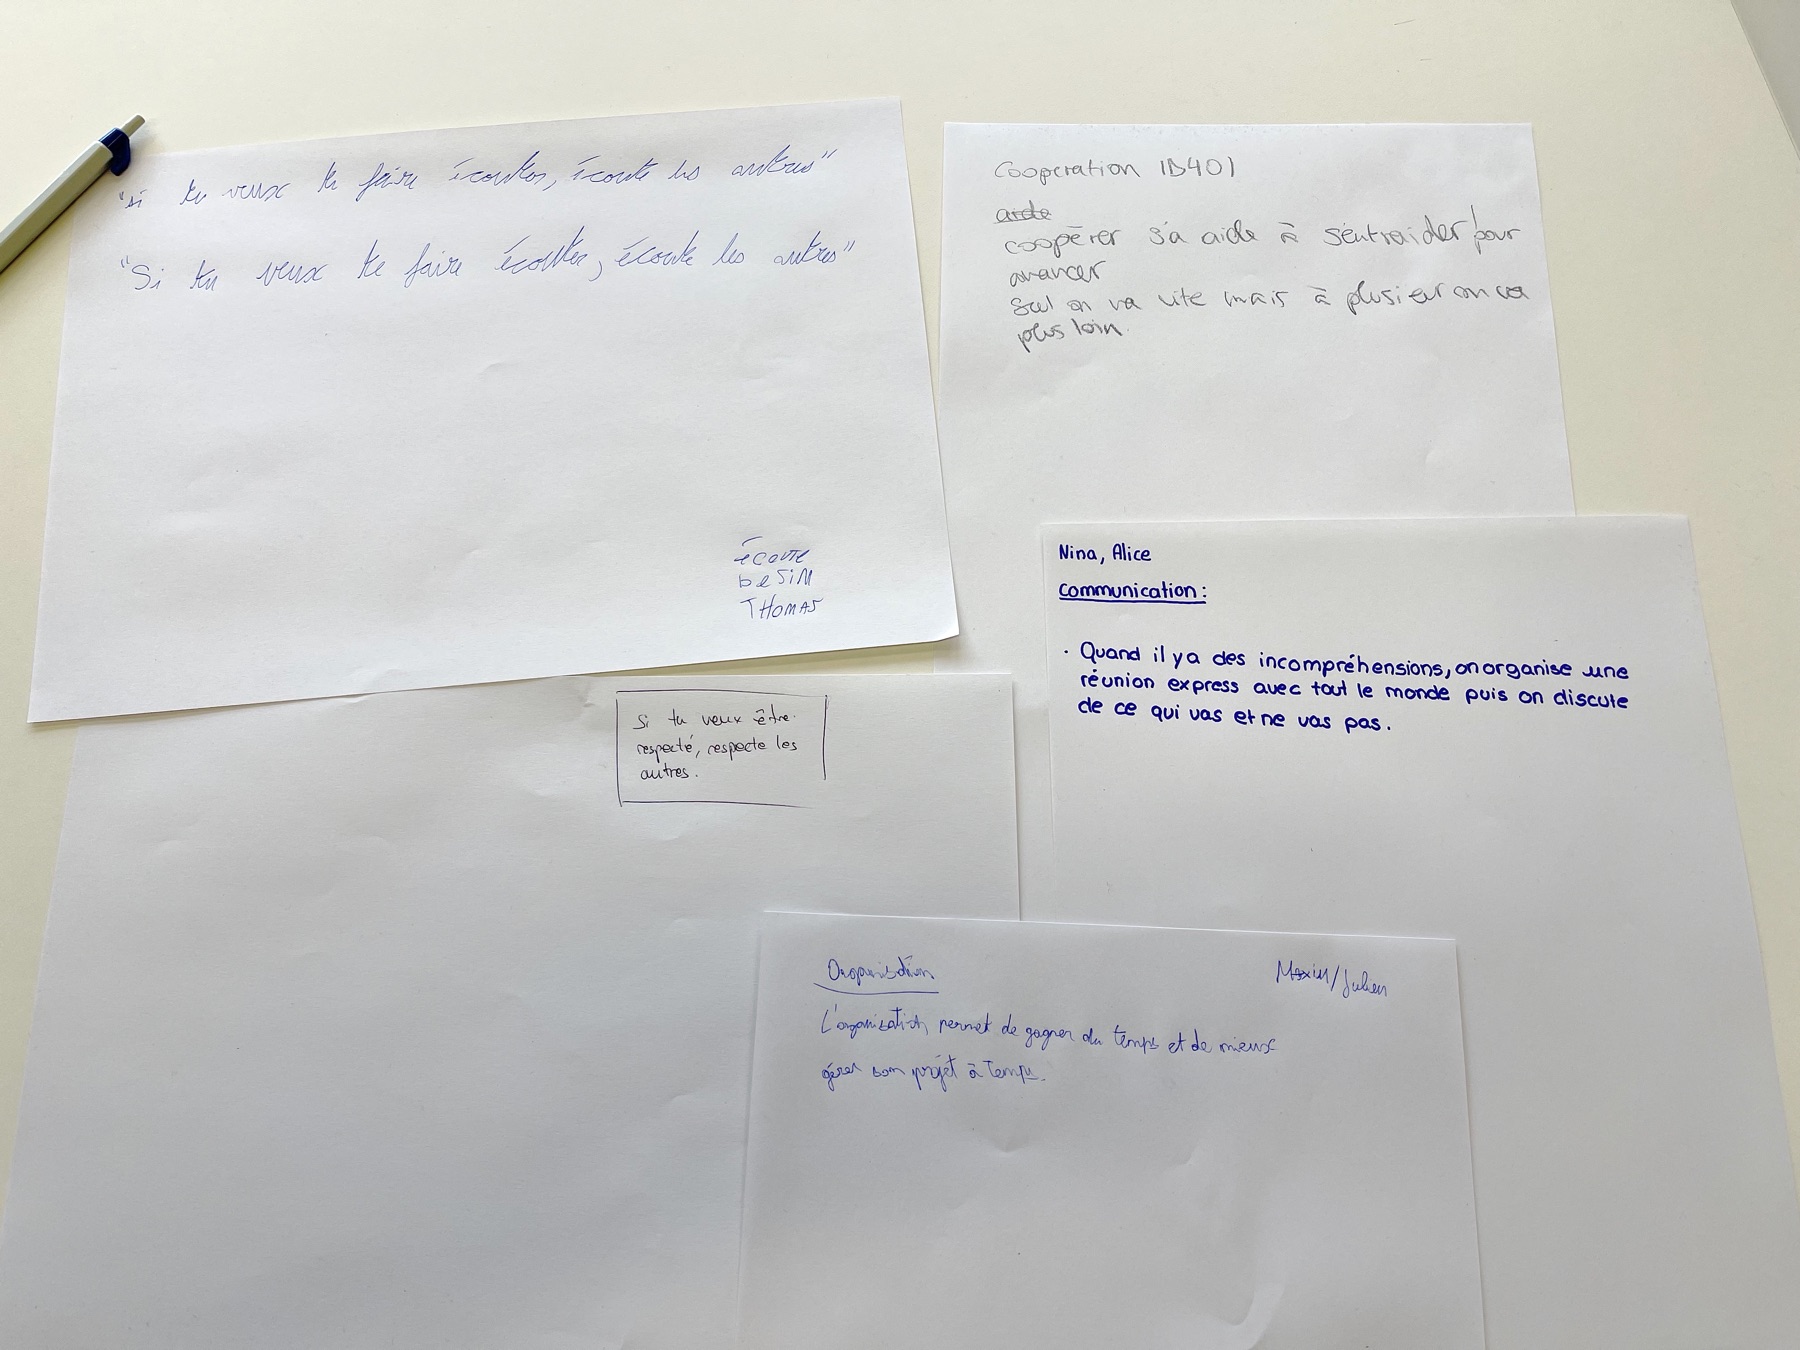 "si tu veux te faire écouter, écoute les autres"
"Si tu veux te faire écouter, écoute les autres"
écoute
besim
THOMAS
Cooperation 1B401
aide
coopérer s'a aide à s'entraider pour
avancer
Seul on va vite mais à plusieur on va
plus loin.
Nina, Alice
Communication :
· Quand il y a des incompréhensions, on organise une
réunion express avec tout le monde puis on discute
de ce qui vas et ne vas pas.
Si tu veux être
respecté, respecte les
autres.
Organisation
Maxim/Julien
L'organisation permet de gagner du temps et de mieux
gérer son projet à temps.